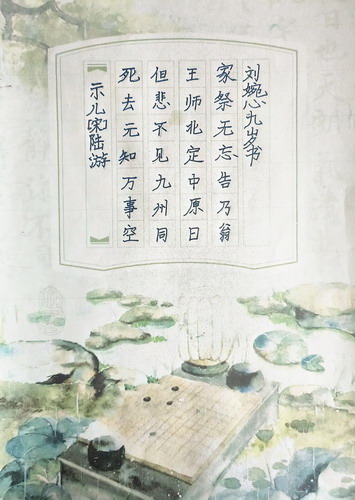 示儿[宋]陆游
死去元知万事空
但悲不见九州同
王师北定中原日
家祭无忘告乃翁
刘婉心九岁书